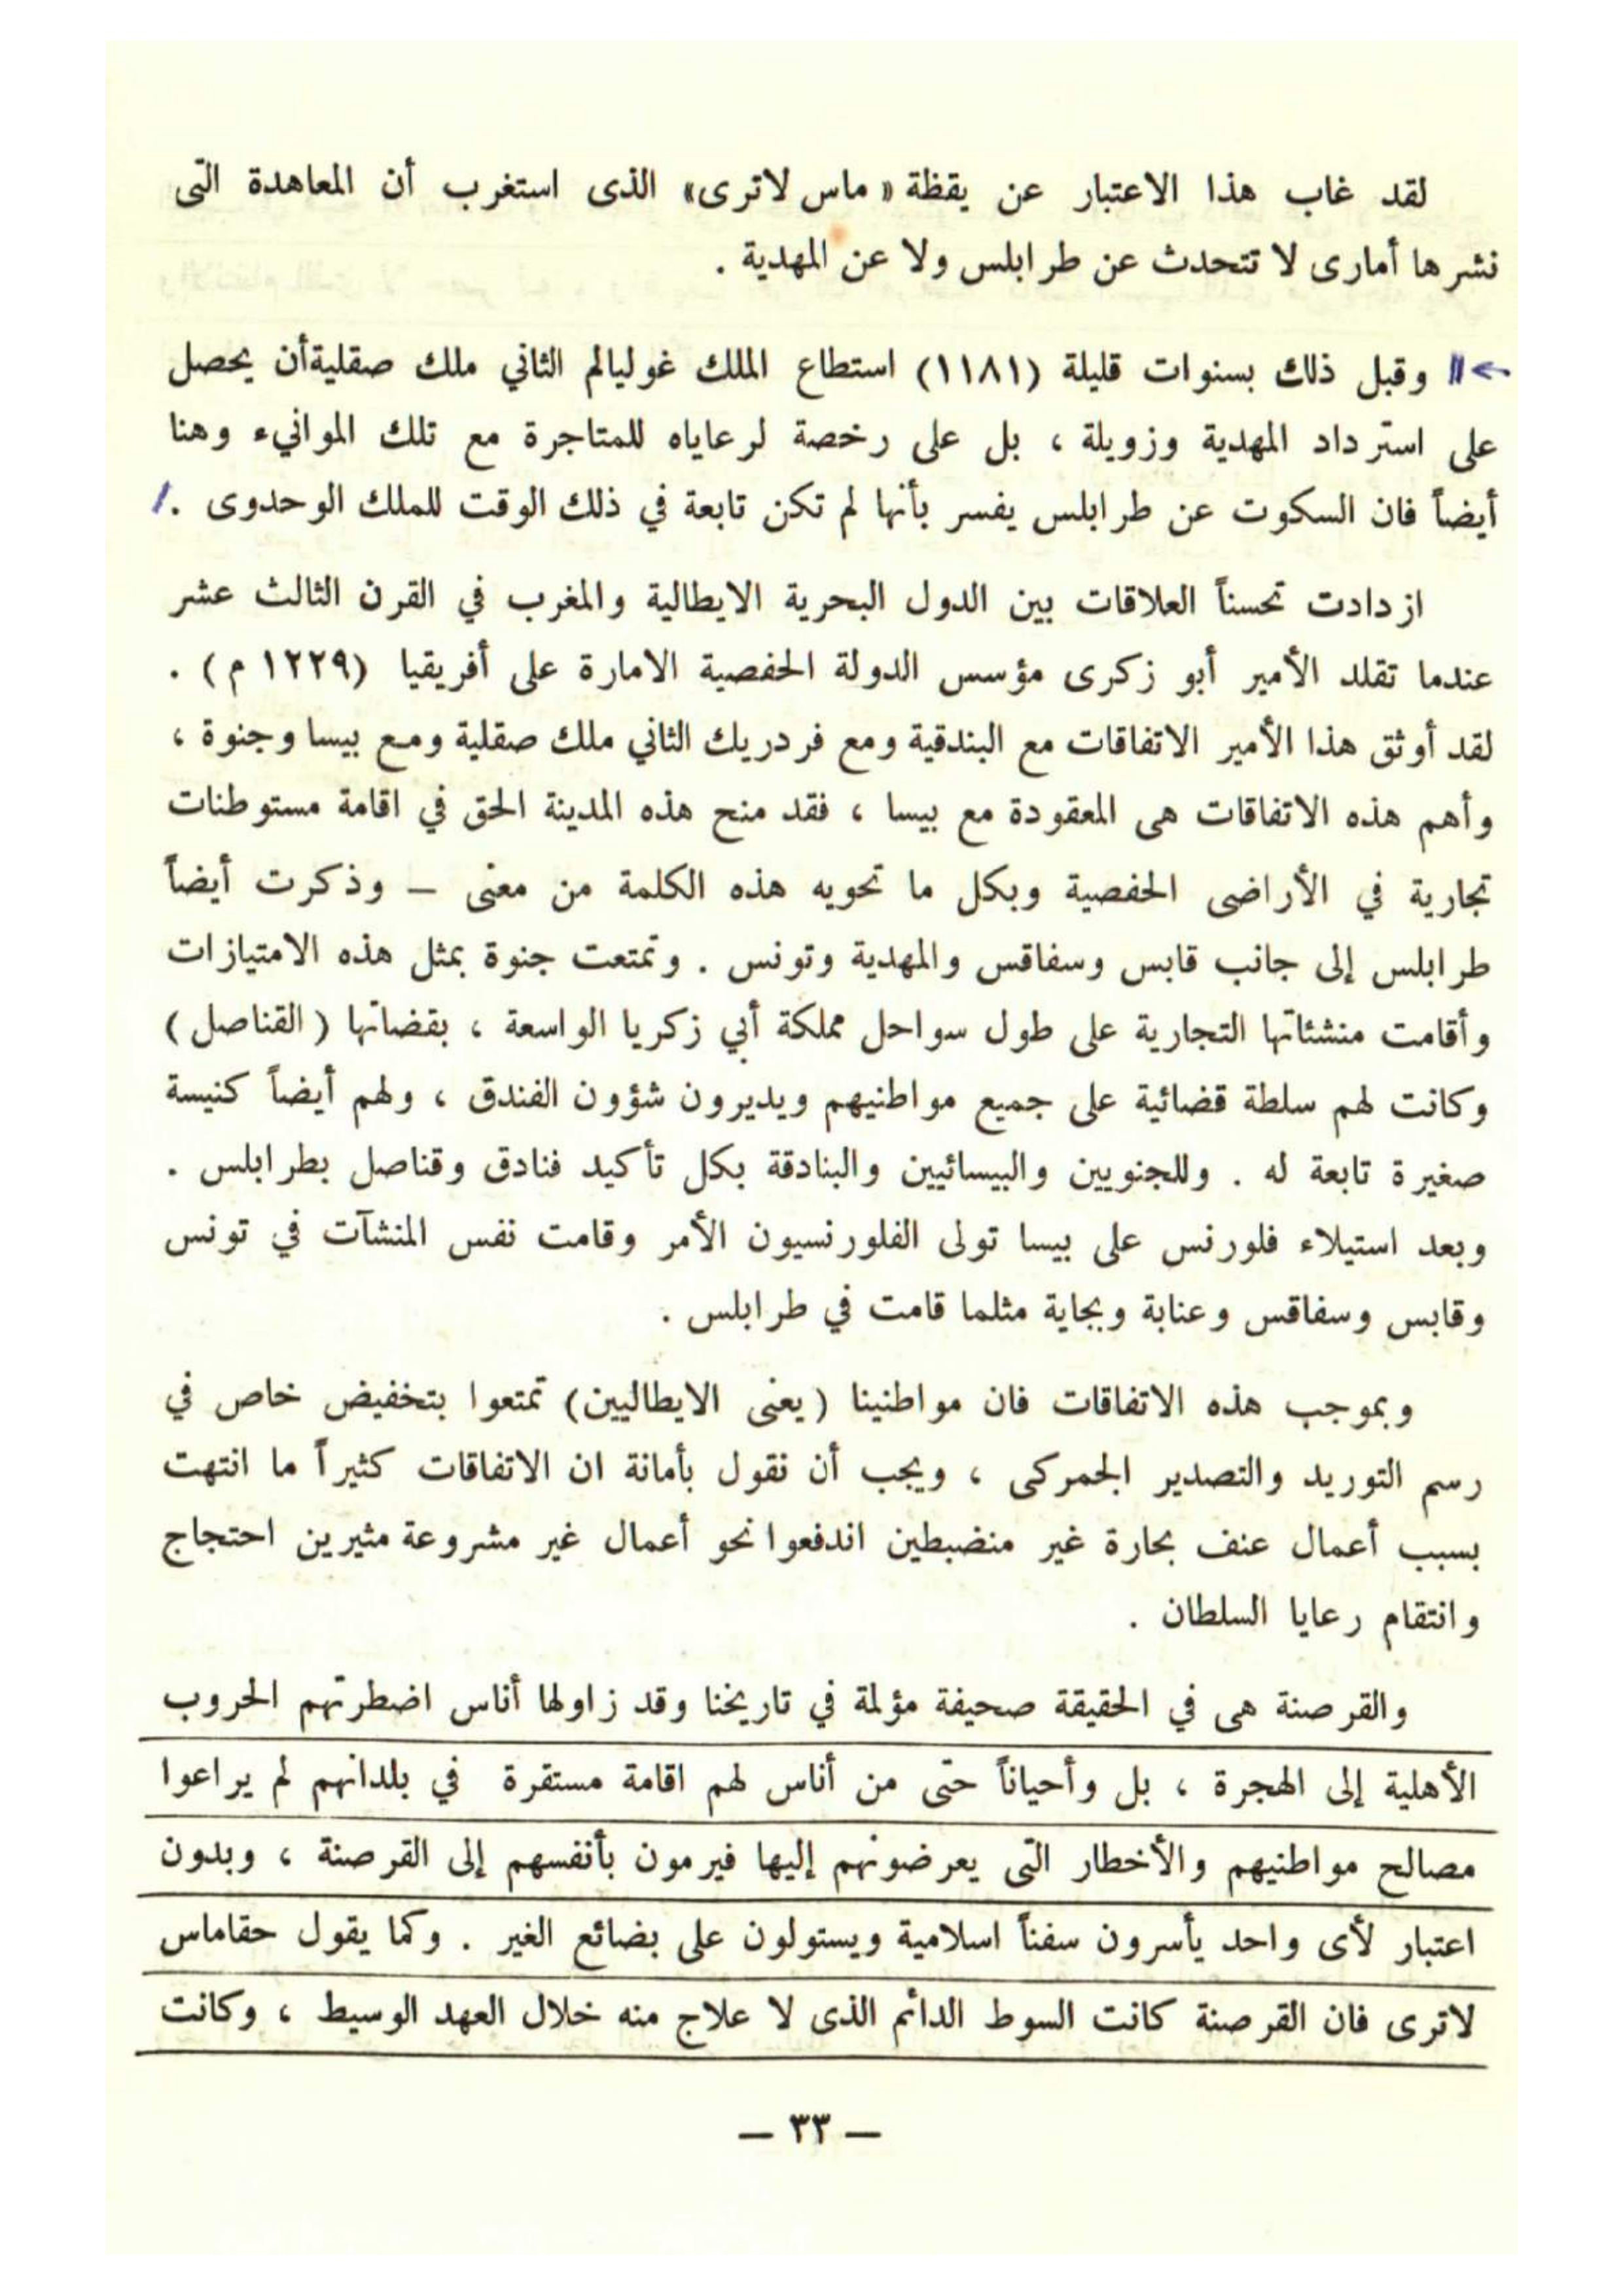 لقد غاب هذا الاعتبار عن يقظة « ماس لاترى» الذى استغرب أن المعاهدة التى
نشرها أمارى لا تتحدث عن طرابلس ولا عن المهدية .
وقبل ذلك بسنوات قليلة (١١٨١) استطاع الملك غوليالم الثاني ملك صقليةأن يحصل
على استرداد المهدية وزويلة ، بل على رخصة لرعاياه للمتاجرة مع تلك الموانيء وهنا
أيضاً فان السكوت عن طرابلس يفسر بأنها لم تكن تابعة في ذلك الوقت للملك الوحدوى .
ازدادت تحسناً العلاقات بين الدول البحرية الايطالية والمغرب في القرن الثالث عشر
عندما تقلد الأمير أبو زكرى مؤسس الدولة الحفصية الامارة على أفريقيا (١٢٢٩ م) .
لقد أوثق هذا الأمير الاتفاقات مع البندقية ومع فردريك الثاني ملك صقلية ومع بيسا وجنوة ،
وأهم هذه الاتفاقات هى المعقودة مع بيسا ، فقد منح هذه المدينة الحق في اقامة مستوطنات
تجارية في الأراضى الحفصية وبكل ما تحويه هذه الكلمة من معنى – وذكرت أيضاً
طرابلس إلى جانب قابس وسفاقس والمهدية وتونس . وتمتعت جنوة بمثل هذه الامتيازات
وأقامت منشئاتها التجارية على طول سواحل مملكة أبي زكريا الواسعة ، بقضاتها (القناصل)
وكانت لهم سلطة قضائية على جميع مواطنيهم ويديرون شؤون الفندق ، ولهم أيضاً كنيسة
صغيرة تابعة له . وللجنويين والبيسائيين والبنادقة بكل تأكيد فنادق وقناصل بطرابلس .
وبعد استيلاء فلورنس على بيسا تولى الفلورنسيون الأمر وقامت نفس المنشآت في تونس
وقابس وسفاقس وعنابة وبجاية مثلما قامت في طرابلس .
وبموجب هذه الاتفاقات فان مواطنينا (يعنى الايطاليين) تمتعوا بتخفيض خاص في
رسم التوريد والتصدير الجمركى ، ويجب أن نقول بأمانة ان الاتفاقات كثيراً ما انتهت
بسبب أعمال عنف بحارة غير منضبطين اندفعوا نحو أعمال غير مشروعة مثيرين احتجاج
وانتقام رعايا السلطان .
والقرصنة هى في الحقيقة صحيفة مؤلمة في تاريخنا وقد زاولها أناس اضطرتهم الحروب
الأهلية إلى الهجرة ، بل وأحياناً حتى من أناس لهم اقامة مستقرة في بلدانهم لم يراعوا
مصالح مواطنيهم والأخطار التى يعرضونهم إليها فيرمون بأنفسهم إلى القرصنة ، وبدون
اعتبار لأى واحد يأسرون سفناً اسلامية ويستولون على بضائع الغير . وكما يقول حقاماس
لاترى فان القرصنة كانت السوط الدائم الذى لا علاج منه خلال العهد الوسيط ، وكانت
– ٣٣ –